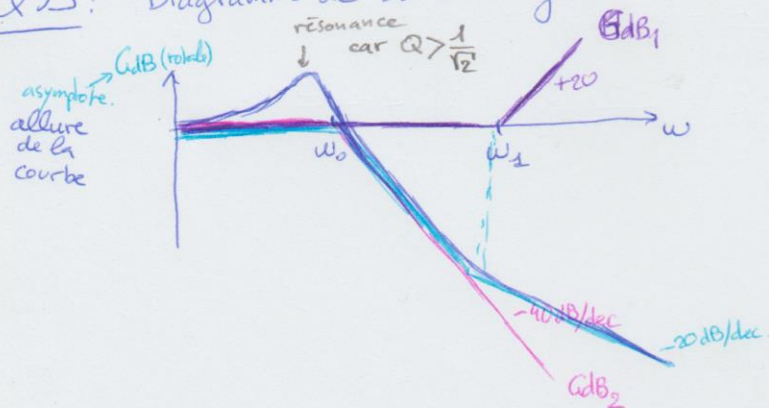 Diagramme de
résonance
car Q > 1/√2
GdB (totale)
asymptote.
allure
de la
courbe
GdB₁
+20
ω
ω₀
ω₁
-40dB/dec
-20dB/dec
GdB₂